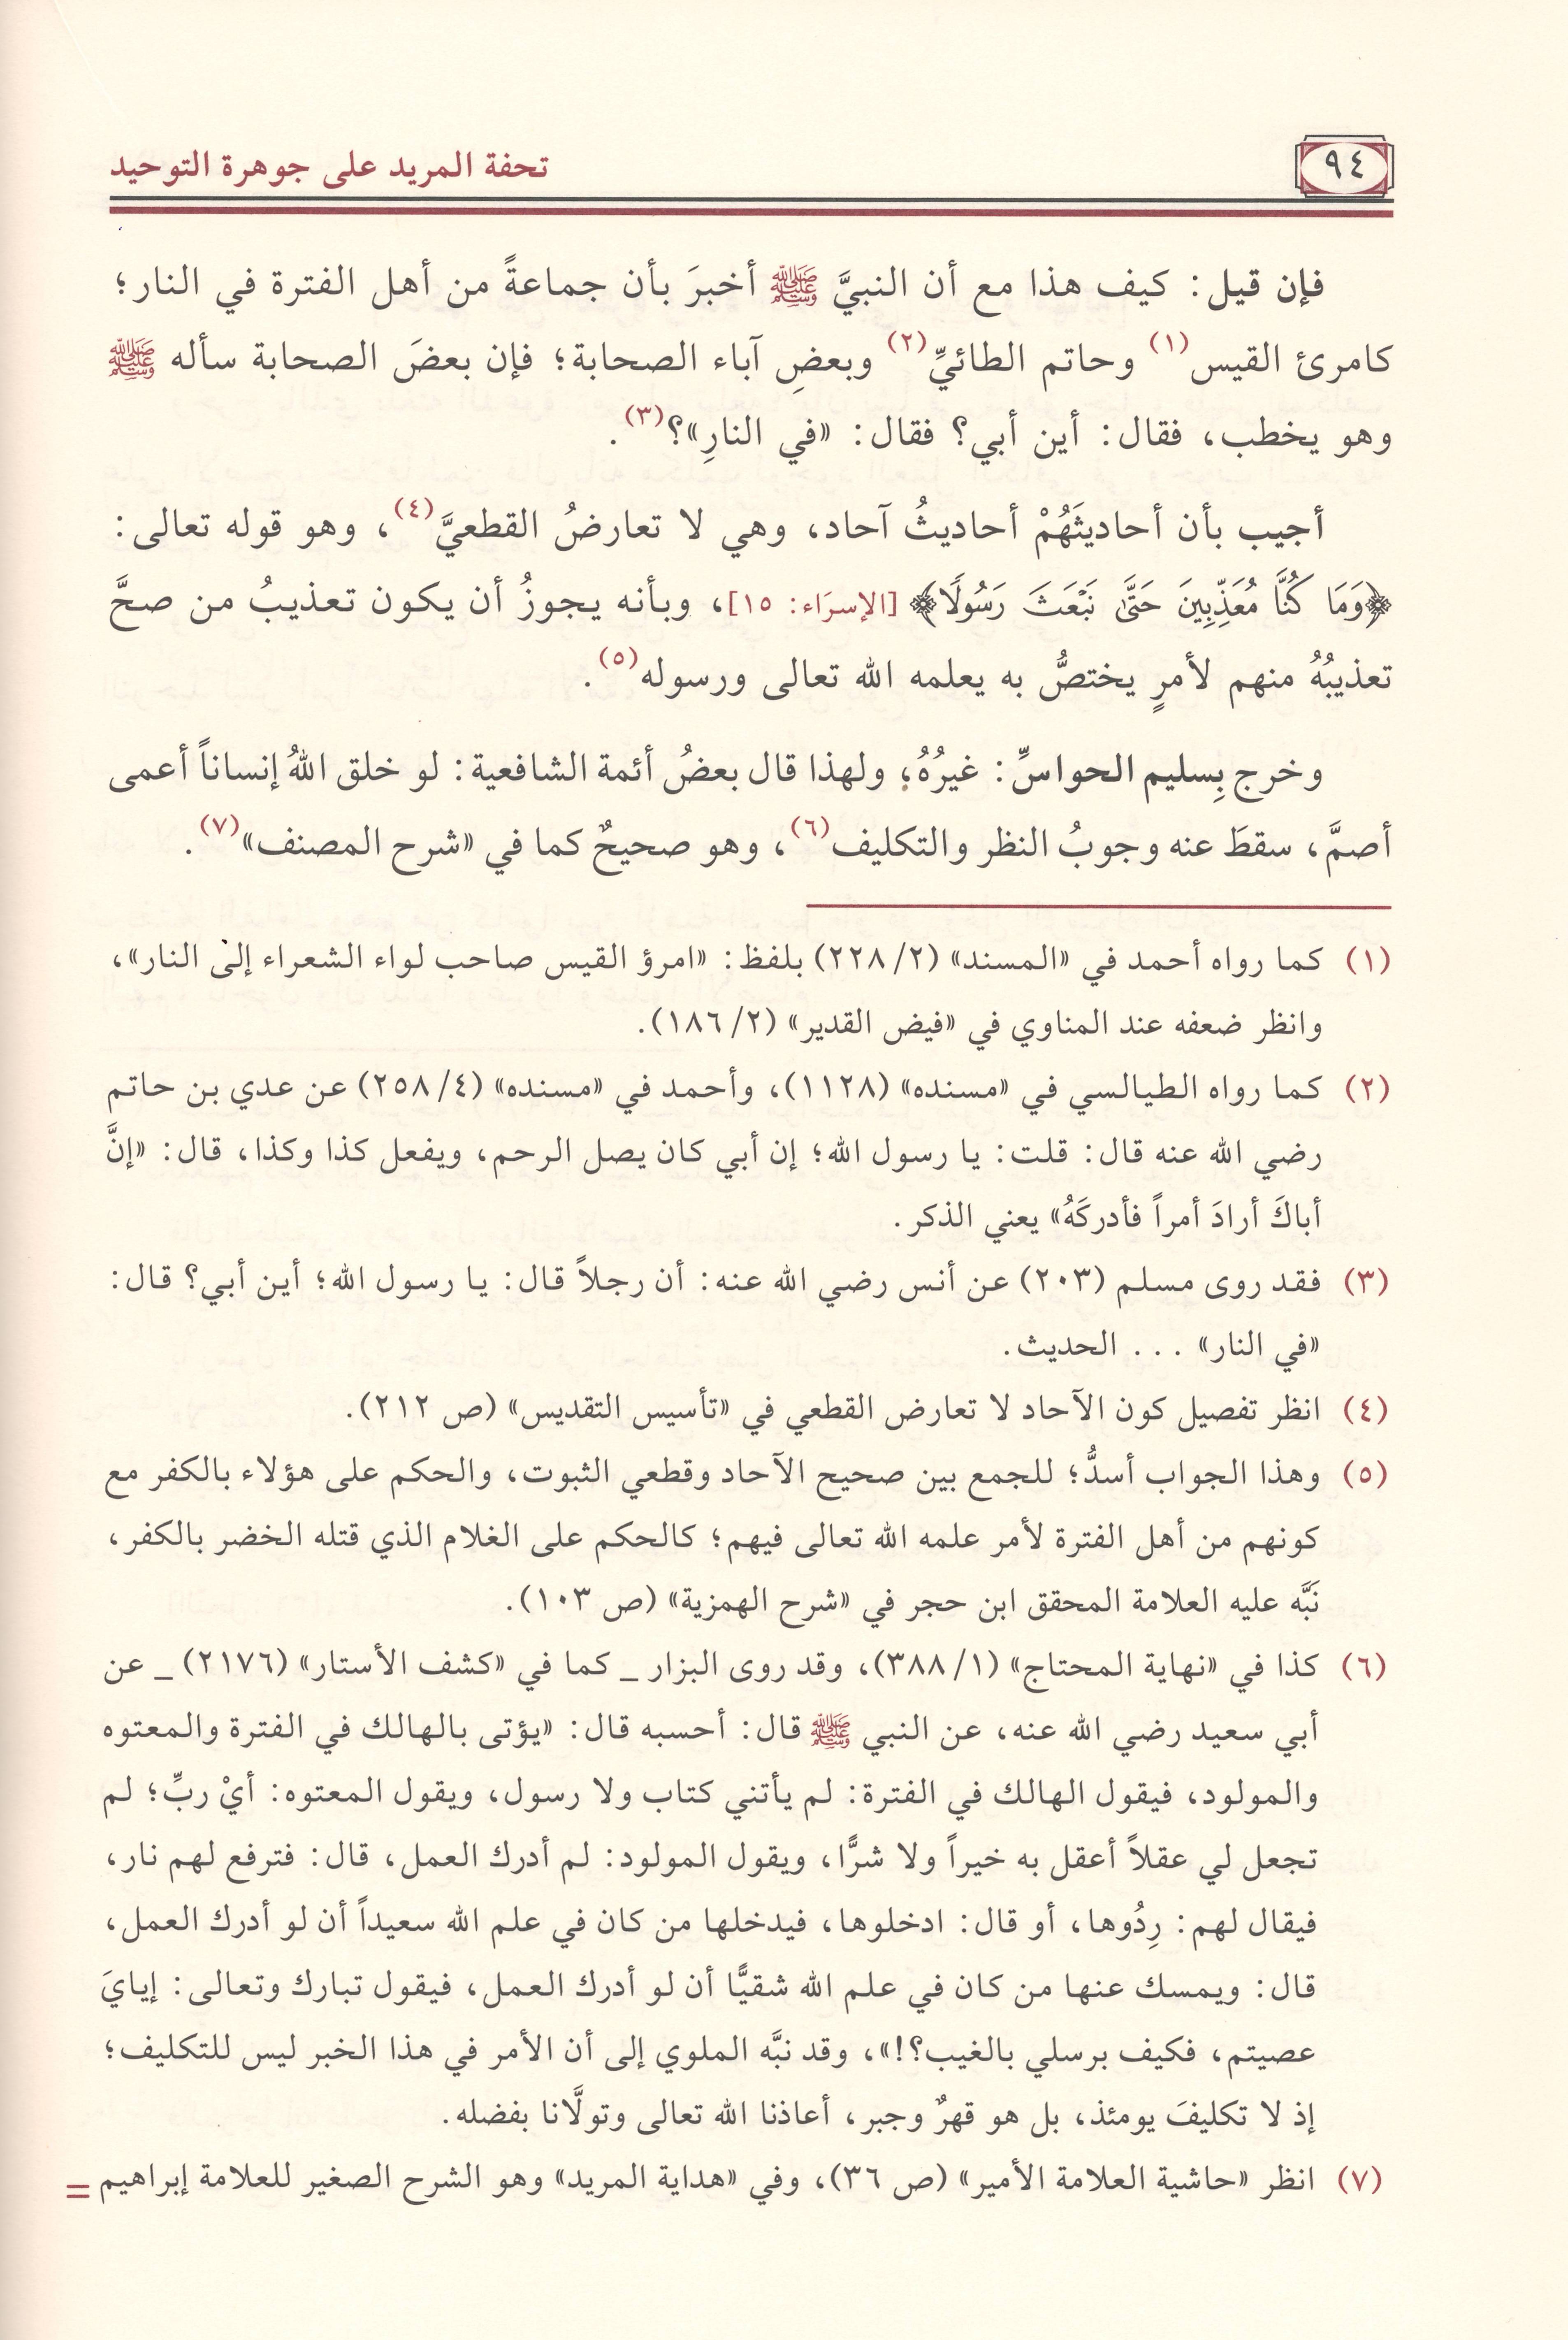 ٩٤
تحفة المريد على جوهرة التوحيد
فإن قيل: كيف هذا مع أن النبيَّ ﷺ أخبرَ بأن جماعةً من أهل الفترة في النار؛
كامرئ القيس(١) وحاتم الطائيِّ(٢) وبعضِ آباء الصحابة؛ فإن بعضَ الصحابة سأله ﷺ
وهو يخطب، فقال: أين أبي؟ فقال: «في النارِ»؟(٣).
أجيب بأن أحاديثَهُمْ أحاديثُ آحاد، وهي لا تعارضُ القطعيَّ(٤)، وهو قوله تعالى:
﴿وَمَا كُنَّا مُعَذِّبِينَ حَتَّىٰ نَبْعَثَ رَسُولًا﴾ [الإسرَاء: ١٥]، وبأنه يجوزُ أن يكون تعذيبُ من صحَّ
تعذيبُهُ منهم لأمرٍ يختصُّ به يعلمه الله تعالى ورسوله(٥).
وخرج بِسليم الحواسِّ: غيرُهُ؛ ولهذا قال بعضُ أئمة الشافعية: لو خلق اللهُ إنساناً أعمى
أصمَّ، سقطَ عنه وجوبُ النظر والتكليف(٦)، وهو صحيحٌ كما في «شرح المصنف»(٧).
(١) كما رواه أحمد في «المسند» (٢/ ٢٢٨) بلفظ: «امرؤ القيس صاحب لواء الشعراء إلى النار»،
وانظر ضعفه عند المناوي في «فيض القدير» (٢/ ١٨٦).
(٢) كما رواه الطيالسي في «مسنده» (١١٢٨)، وأحمد في «مسنده» (٤/ ٢٥٨) عن عدي بن حاتم
رضي الله عنه قال: قلت: يا رسول الله؛ إن أبي كان يصل الرحم، ويفعل كذا وكذا، قال: «إنَّ
أباكَ أرادَ أمراً فأدركَهُ» يعني الذكر.
(٣) فقد روى مسلم (٢٠٣) عن أنس رضي الله عنه: أن رجلاً قال: يا رسول الله؛ أين أبي؟ قال:
«في النار» ... الحديث.
(٤) انظر تفصيل كون الآحاد لا تعارض القطعي في «تأسيس التقديس» (ص ٢١٢).
(٥) وهذا الجواب أسدُّ؛ للجمع بين صحيح الآحاد وقطعي الثبوت، والحكم على هؤلاء بالكفر مع
كونهم من أهل الفترة لأمر علمه الله تعالى فيهم؛ كالحكم على الغلام الذي قتله الخضر بالكفر،
نَبَّه عليه العلامة المحقق ابن حجر في «شرح الهمزية» (ص ١٠٣).
(٦) كذا في «نهاية المحتاج» (١/ ٣٨٨)، وقد روى البزار _ كما في «كشف الأستار» (٢١٧٦) _ عن
أبي سعيد رضي الله عنه، عن النبي ﷺ قال: أحسبه قال: «يؤتى بالهالك في الفترة والمعتوه
والمولود، فيقول الهالك في الفترة: لم يأتني كتاب ولا رسول، ويقول المعتوه: أيْ ربِّ؛ لم
تجعل لي عقلاً أعقل به خيراً ولا شرًّا، ويقول المولود: لم أدرك العمل، قال: فترفع لهم نار،
فيقال لهم: رِدُوها، أو قال: ادخلوها، فيدخلها من كان في علم الله سعيداً أن لو أدرك العمل،
قال: ويمسك عنها من كان في علم الله شقيًّا أن لو أدرك العمل، فيقول تبارك وتعالى: إيايَ
عصيتم، فكيف برسلي بالغيب؟!»، وقد نبَّه الملوي إلى أن الأمر في هذا الخبر ليس للتكليف؛
إذ لا تكليفَ يومئذ، بل هو قهرٌ وجبر، أعاذنا الله تعالى وتولَّانا بفضله.
(٧) انظر «حاشية العلامة الأمير» (ص ٣٦)، وفي «هداية المريد» وهو الشرح الصغير للعلامة إبراهيم =